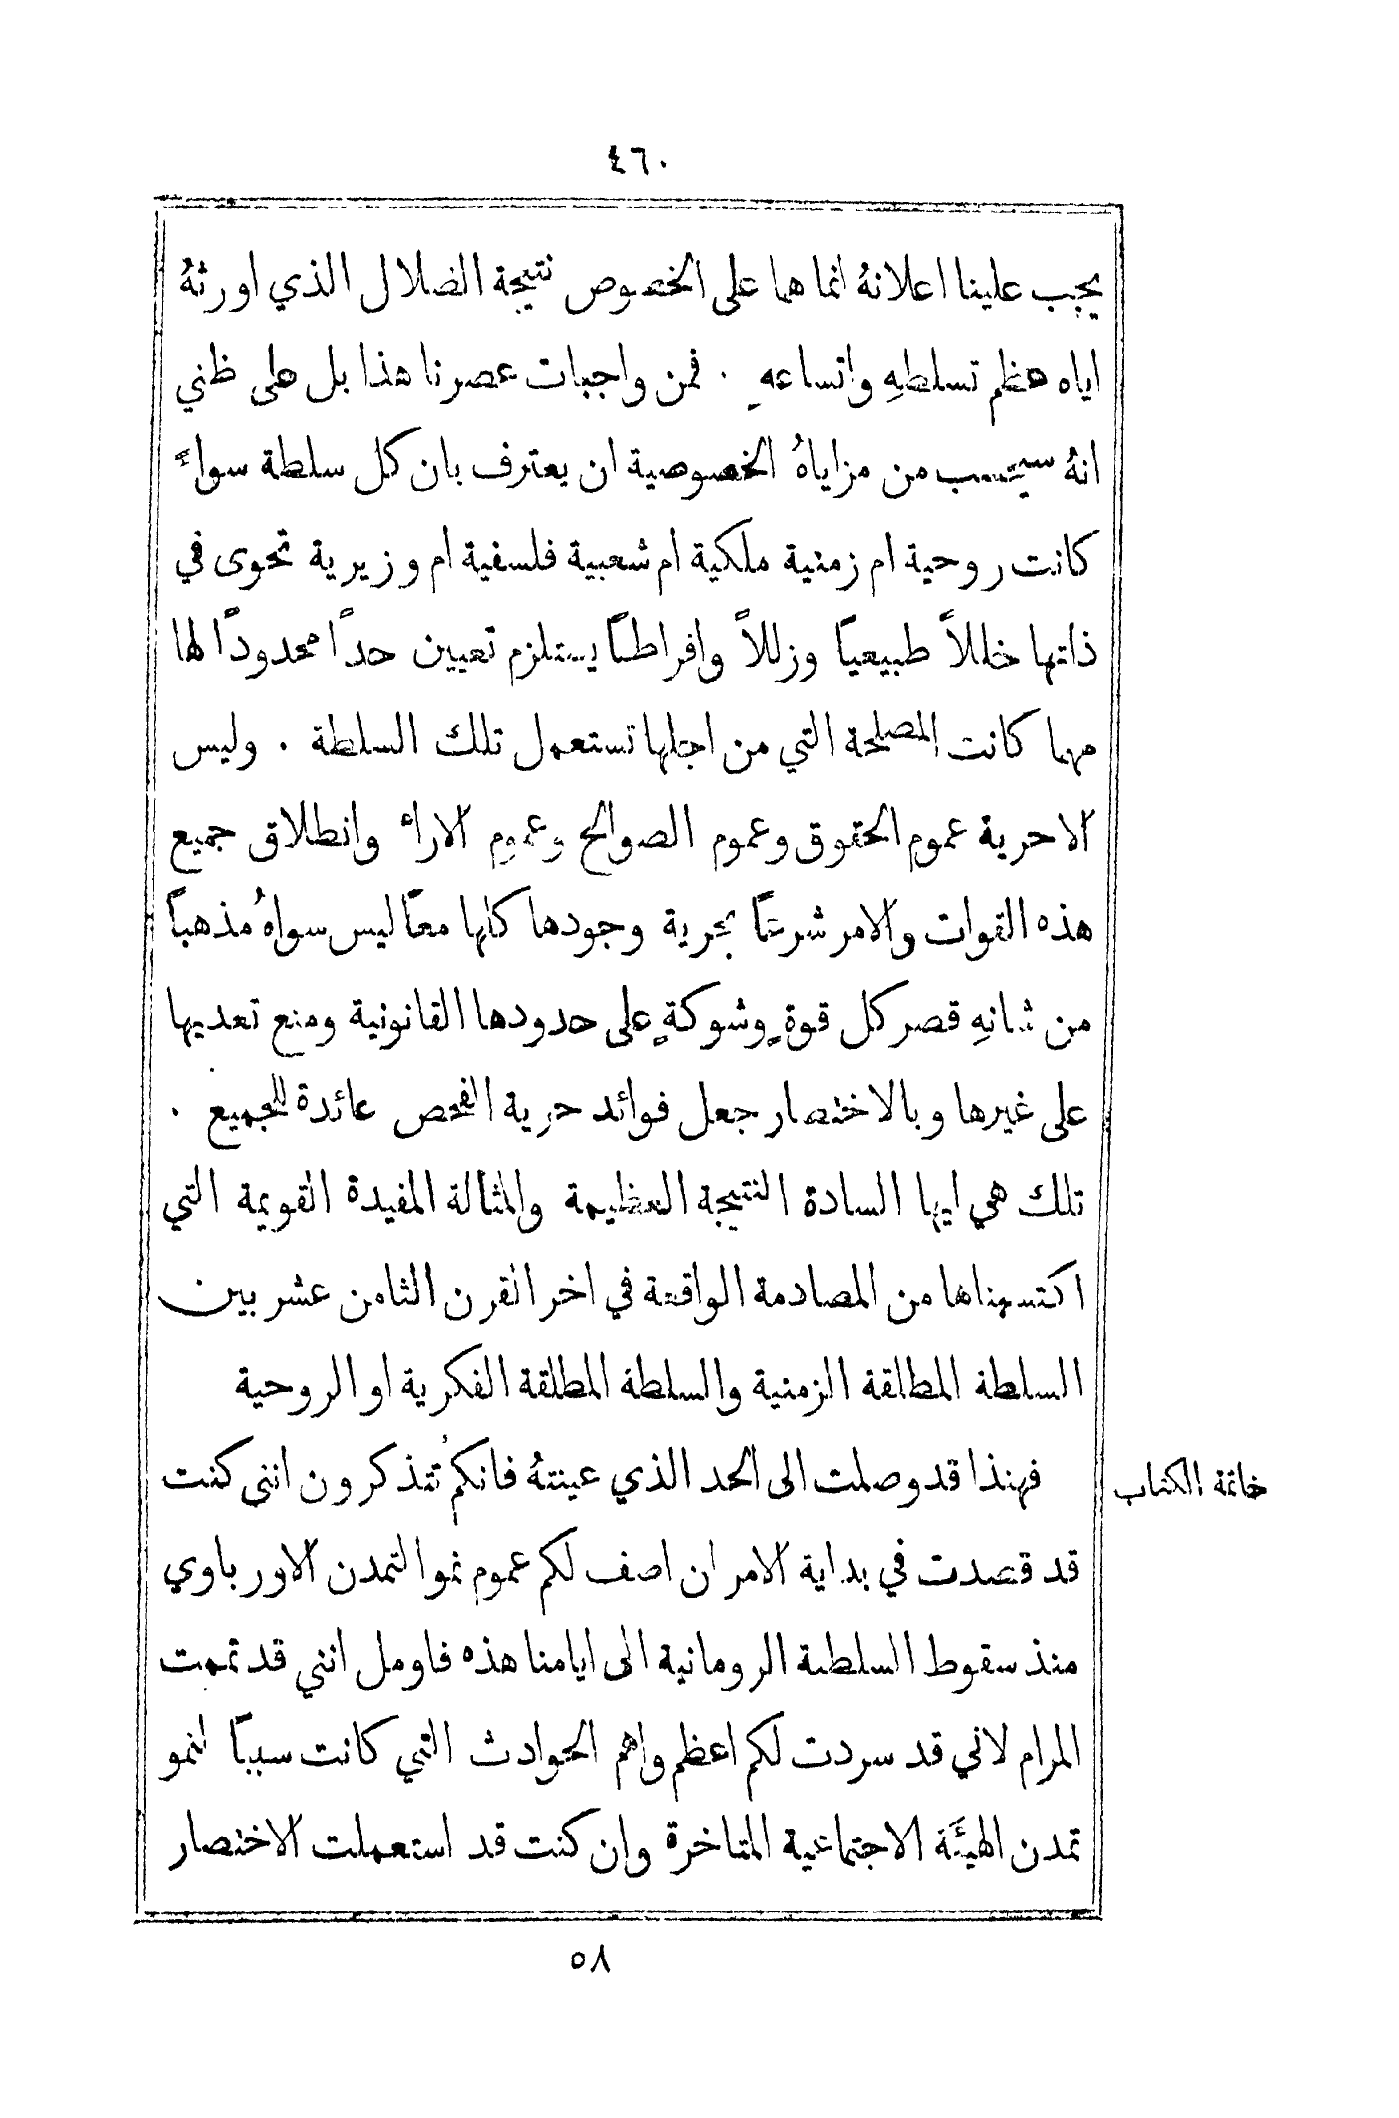 ٤٦٠
يجب علينا اعلانهُ انما هما على الخصوص نتيجة الضلال الذي اورثهُ
اياه عظم تسلطهِ واتساعهِ . فمن واجبات عصرنا هذا بل على ظني
انهُ سيحتسب من مزاياهُ الخصوصية ان يعترف بان كل سلطة سواءً
كانت روحية ام زمنية ملكية ام شعبية فلسفية ام وزيرية تحوى في
ذاتها خللاً طبيعياً وزللاً وافراطاً يستلزم تعيين حداً محدوداً لها
مهما كانت المصلحة التي من اجلها تستعمل تلك السلطة . وليس
الا حرية عموم الحقوق وعموم الصوالح وعموم الاراء وانطلاق جميع
هذه القوات والامر شرعاً بحرية وجودها كلها معاً ليس سواهُ مذهباً
من شانهِ قصر كل قوةٍ وشوكةٍ على حدودها القانونية ومنع تعديها
على غيرها وبالاختصار جعل فوائد حرية الفحص عائدة للجميع .
تلك هي ايها السادة النتيجة العظيمة والمثالة المفيدة القويمة التي
اكتسبناها من المصادمة الواقعة في اخر القرن الثامن عشر بين
السلطة المطلقة الزمنية والسلطة المطلقة الفكرية او الروحية
فهنذا قد وصلت الى الحد الذي عينتهُ فانكم تتذكرون انني كنت
خاتمة الكتاب
قد قصدت في بداية الامر ان اصف لكم عموم نمو التمدن الاورباوي
منذ سقوط السلطة الرومانية الى ايامنا هذه فاومل انني قد تممت
المرام لاني قد سردت لكم اعظم واهم الحوادث التي كانت سبباً لنمو
تمدن الهيئَة الاجتماعية المتاخرة وان كنت قد استعملت الاختصار
٥٨